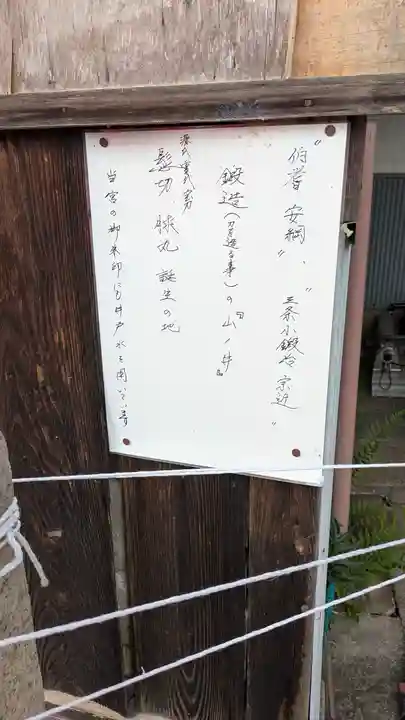 "伯耆 安綱"、"三条小鍛冶宗近"
鍛造(刀を造る事)の『山ノ井』
源氏重代宝刀
髭切 膝丸 誕生の地
当宮の御朱印にも井戸水を用いています